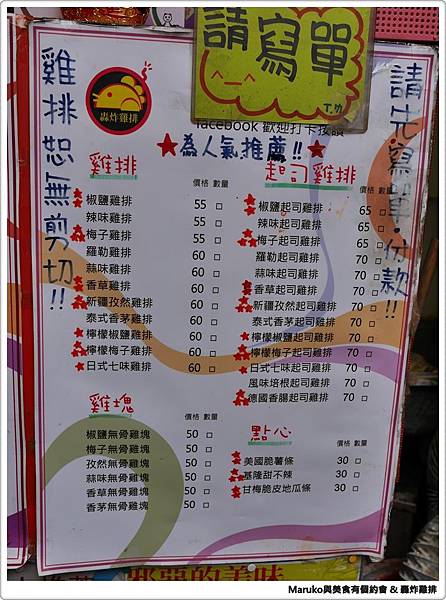 請寫單
T.功
facebook 歡迎打卡按讚
雞排恕無剪切!!
轟炸雞排
★為人氣推薦!!★
請先寫單.付款!!
雞排
價格 數量
椒鹽雞排 55 □
辣味雞排 55 □
梅子雞排 55 □
羅勒雞排 60 □
蒜味雞排 60 □
香草雞排 60 □
新疆孜然雞排 60 □
泰式香茅雞排 60 □
檸檬椒鹽雞排 60 □
檸檬梅子雞排 60 □
日式七味雞排 60 □
起司雞排
價格 數量
椒鹽起司雞排 65 □
辣味起司雞排 65 □
梅子起司雞排 65 □
羅勒起司雞排 70 □
蒜味起司雞排 70 □
香草起司雞排 70 □
新疆孜然起司雞排 70 □
泰式香茅起司雞排 70 □
檸檬椒鹽起司雞排 70 □
檸檬梅子起司雞排 70 □
日式七味起司雞排 70 □
風味培根起司雞排 70 □
德國香腸起司雞排 70 □
雞塊
價格 數量
椒鹽無骨雞塊 50 □
梅子無骨雞塊 50 □
孜然無骨雞塊 50 □
蒜味無骨雞塊 50 □
香草無骨雞塊 50 □
香茅無骨雞塊 50 □
點心
價格 數量
美國脆薯條 30 □
基隆甜不辣 30 □
甘梅脆皮地瓜條 30 □
邪惡的美味
Maruko與美食有個約會 & 轟炸雞排